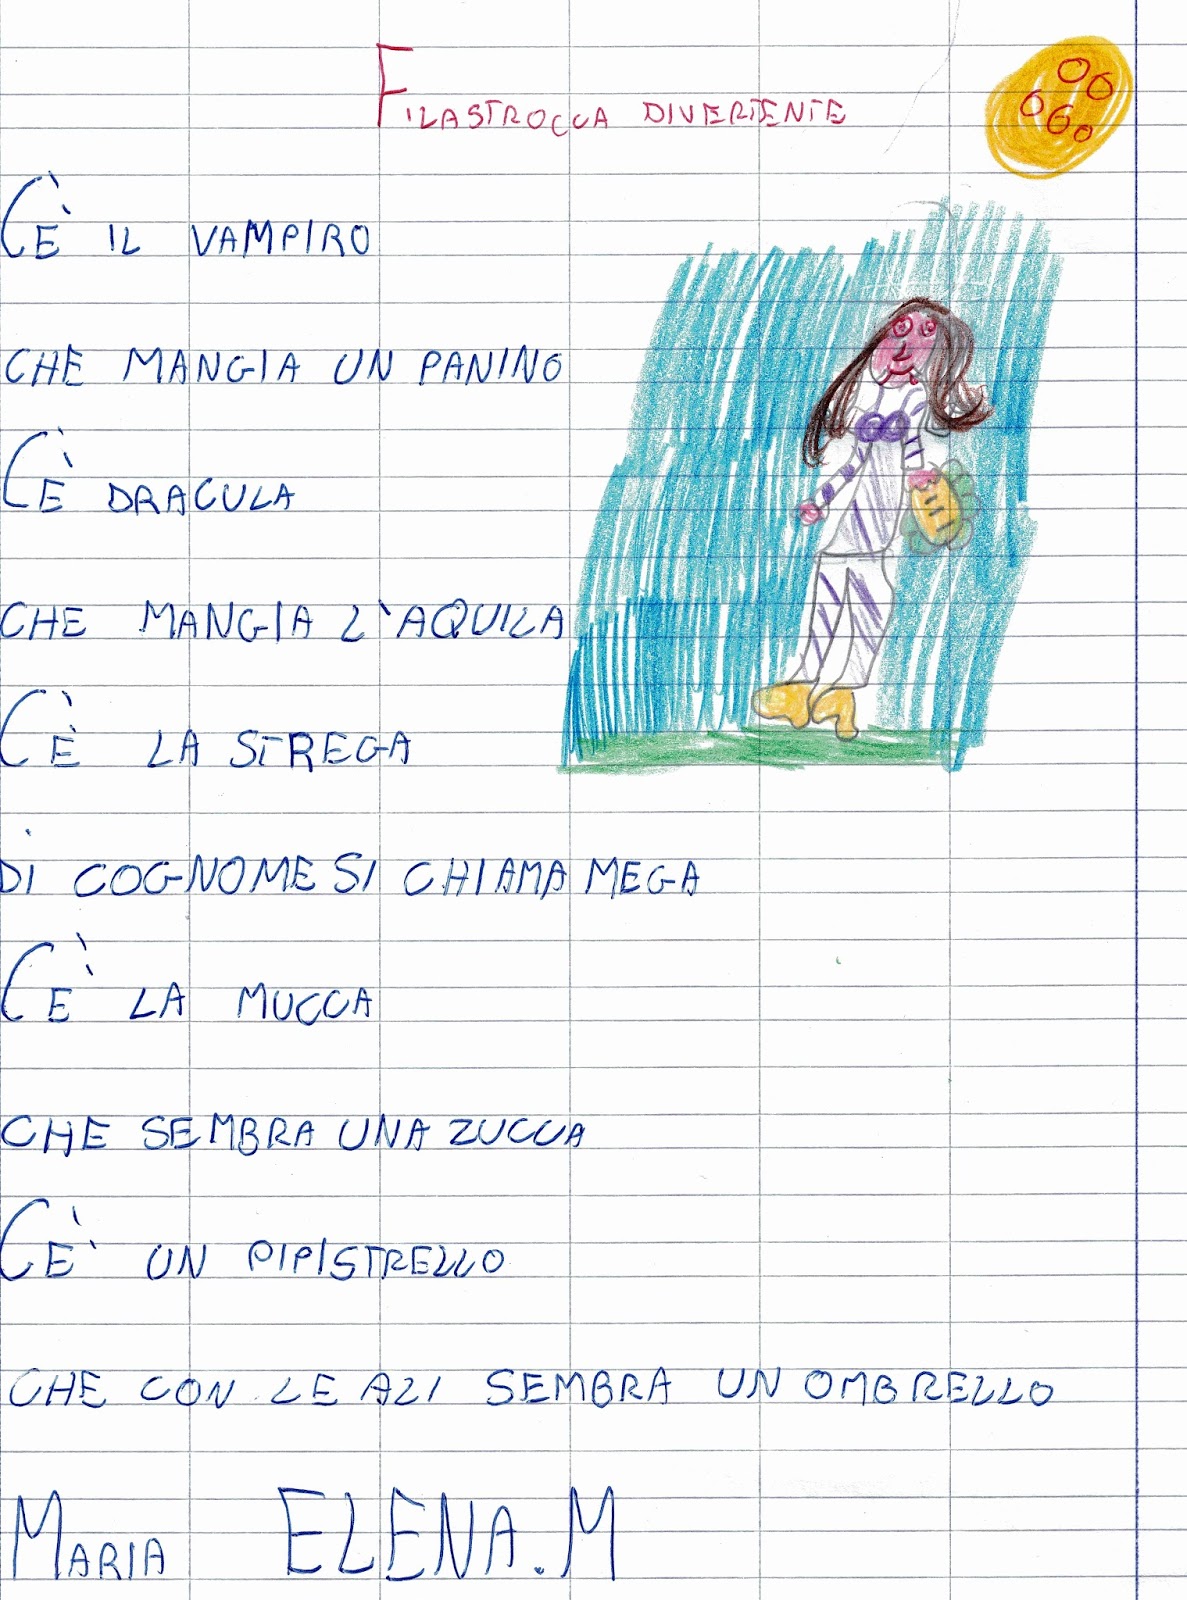 FILASTROCCA DIVERTENTE
C'È IL VAMPIRO
CHE MANGIA UN PANINO
C'È DRACULA
CHE MANGIA L'AQUILA
C'È LA STREGA
DI COGNOME SI CHIAMA MEGA
C'È LA MUCCA
CHE SEMBRA UNA ZUCCA
C'È UN PIPISTRELLO
CHE CON LE ALI SEMBRA UN OMBRELLO
MARIA ELENA.M